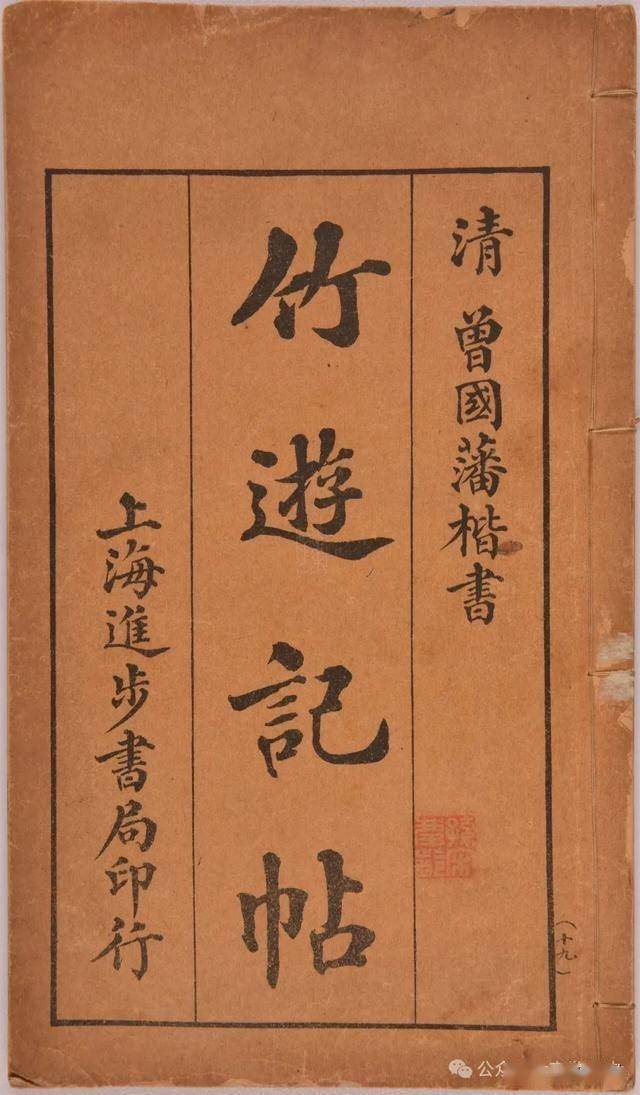 清 曾國藩楷書
竹遊記帖
上海進步書局印行
（十九）
公众号